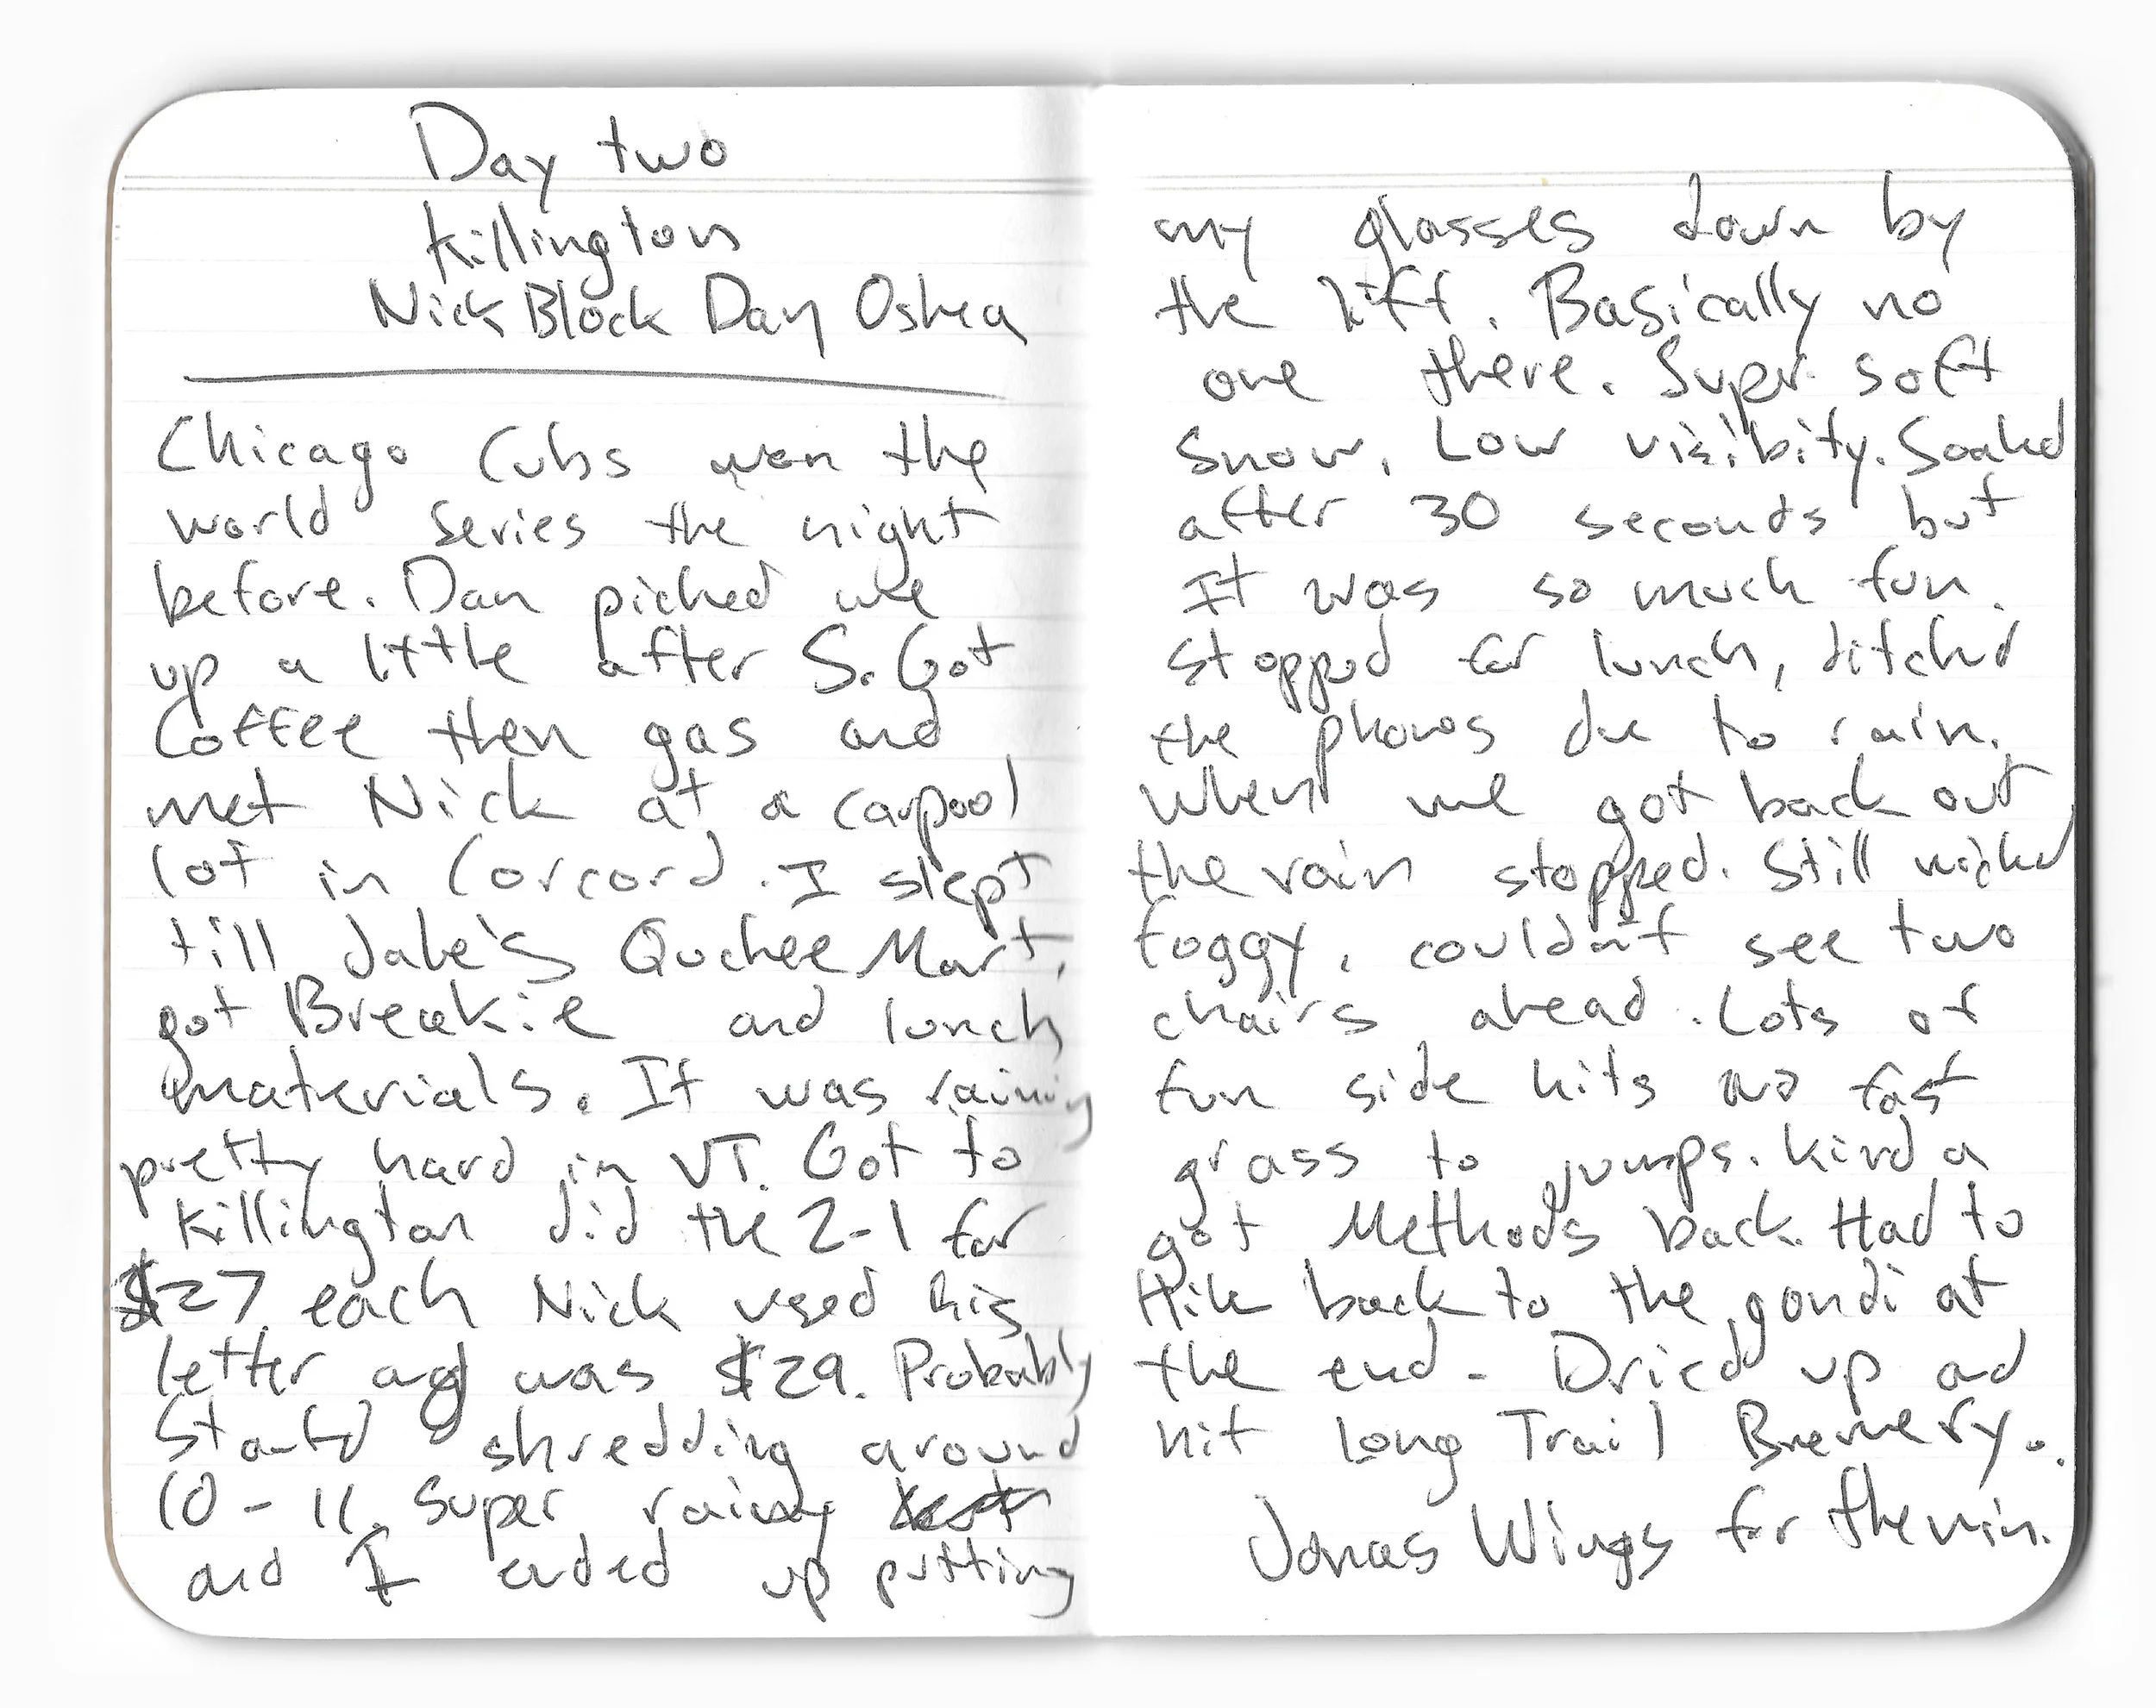 Day two
Killington
Nick Block Dan Oshea
Chicago Cubs won the
world series the night
before. Dan picked me
up a little after 5. Got
Coffee then gas and
met Nick at a carpool
lot in Concord. I slept
till Jake's Quchee Mart,
got Breakie and lunch
materials. It was raining
pretty hard in VT. Got to
Killington did the 2-1 for
$27 each Nick used his
letter and was $29. Probably
Started shredding around
10-11. Super rainy
and I ended up putting
my glasses down by
the lift. Basically no
one there. Super soft
Snow. Low visibity. Soaked
after 30 seconds but
It was so much fun.
Stopped for lunch, ditched
the phones due to rain.
When we got back out
the rain stopped. Still wicked
foggy, couldn't see two
chairs ahead. Lots of
fun side hits and fast
grass to jumps. Kind a
got Methods back. Had to
Hike back to the gondi at
the end. Dried up and
hit Long Trail Brewery.
Jonas Wings for the win.